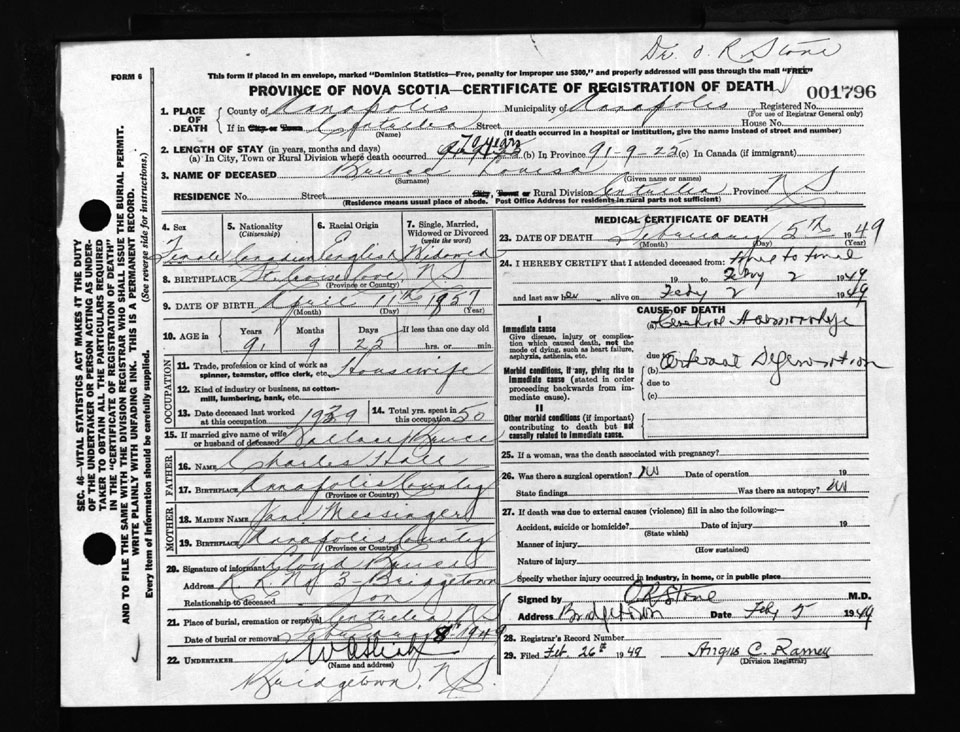 Dr. O. R. Stone
FORM 6
This form if placed in an envelope, marked "Dominion Statistics—Free, penalty for improper use $300," and properly addressed will pass through the mail "FREE"
PROVINCE OF NOVA SCOTIA—CERTIFICATE OF REGISTRATION OF DEATH
001796
1. PLACE OF DEATH
County of Annapolis Municipality of Annapolis Registered No.
(For use of Registrar General only)
If in City or Town Centrelea Street House No.
(Name) (If death occurred in a hospital or institution, give the name instead of street and number)
2. LENGTH OF STAY (in years, months and days)
(a) In City, Town or Rural Division where death occurred 70 years (b) In Province 91-9-22 (c) In Canada (if immigrant)
3. NAME OF DECEASED Bruce Louisa
(Surname) (Given name or names)
RESIDENCE No. Street City, Town or Rural Division Centrelea Province N.S.
(Residence means usual place of abode. Post Office Address for residents in rural parts not sufficient)
4. Sex Female
5. Nationality (Citizenship) Canadian
6. Racial Origin English
7. Single, Married, Widowed or Divorced (write the word) Widowed
8. BIRTHPLACE N.S.
(Province or Country)
9. DATE OF BIRTH April 11th 1857
(Month) (Day) (Year)
10. AGE in Years Months Days If less than one day old
91 9 22 hrs. or min.
OCCUPATION
11. Trade, profession or kind of work as spinner, teamster, office clerk, etc. Housewife
12. Kind of industry or business, as cotton-mill, lumbering, bank, etc.
13. Date deceased last worked at this occupation 1939
14. Total yrs. spent in this occupation 50
15. If married give name of wife or husband of deceased Wallace Bruce
FATHER
16. NAME Charles Hall
17. BIRTHPLACE Annapolis County
(Province or Country)
MOTHER
18. MAIDEN NAME Jane Messinger
19. BIRTHPLACE Annapolis County
(Province or Country)
20. Signature of informant Lloyd Bruce
Address R.R. No 3 - Bridgetown
Relationship to deceased Son
21. Place of burial, cremation or removal Centrelea N.S.
Date of burial or removal February 8th 1949
22. UNDERTAKER
(Name and address)
Bridgetown, N.S.
MEDICAL CERTIFICATE OF DEATH
23. DATE OF DEATH February 5th 1949
(Month) (Day) (Year)
24. I HEREBY CERTIFY that I attended deceased from: time to time
19 to Feby 2 1949
and last saw her alive on Feby 2 1949
CAUSE OF DEATH
I
Immediate cause
Give disease, injury or complication which caused death, not the mode of dying, such as heart failure, asphyxia, asthenia, etc.
(a) Cerebral Haemorrhage
due to
Morbid conditions, if any, giving rise to immediate cause (stated in order proceeding backwards from immediate cause).
(b) Degeneration
due to
(c)
II
Other morbid conditions (if important) contributing to death but not causally related to immediate cause.
25. If a woman, was the death associated with pregnancy?
26. Was there a surgical operation? No Date of operation 19
State findings Was there an autopsy? No
27. If death was due to external causes (violence) fill in also the following:—
Accident, suicide or homicide? Date of injury 19
(State which)
Manner of injury
(How sustained)
Nature of injury
Specify whether injury occurred in industry, in home, or in public place
Signed by O R Stone M.D.
Address Bridgetown Date Feby 5 1949
28. Registrar's Record Number
29. Filed Feb. 26th 1949 Angus C. Ramey
(Division Registrar)
SEC. 46—VITAL STATISTICS ACT MAKES IT THE DUTY
OF THE UNDERTAKER OR PERSON ACTING AS UNDER-
TAKER TO OBTAIN ALL THE PARTICULARS REQUIRED
IN THE "CERTIFICATE OF REGISTRATION OF DEATH"
AND TO FILE THE SAME WITH THE DIVISION REGISTRAR WHO SHALL ISSUE THE BURIAL PERMIT.
WRITE PLAINLY WITH UNFADING INK. THIS IS A PERMANENT RECORD.
Every item of information should be carefully supplied. (See reverse side for instructions.)